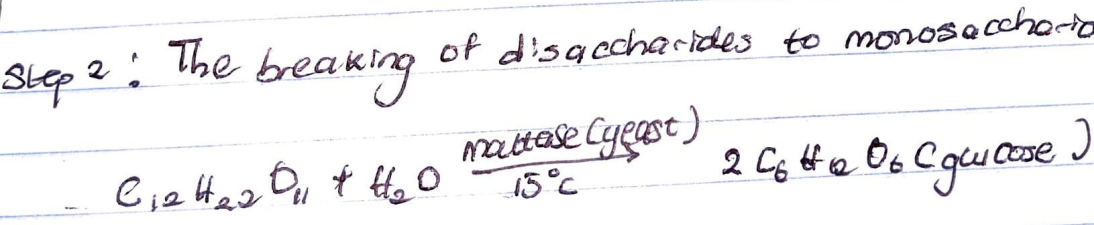 Step 2 : The breaking of disaccharides to monosaccharid
C₁₂H₂₂O₁₁ + H₂O maltase (yeast) 15°C 2 C₆H₁₂O₆ (glucose)